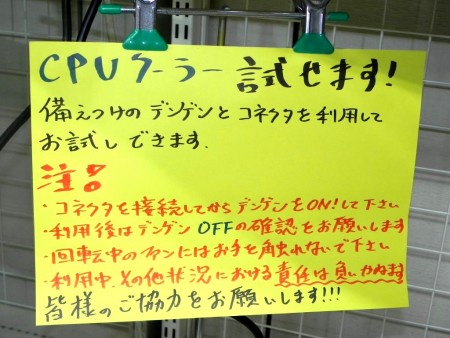 CPUクーラー 試せます!
備えつけの デンゲンと コネクタを利用して
お試しできます.
注!
・コネクタを接続してから デンゲンをON!して下さい
・利用後はデンゲン OFFの確認をお願いします
・回転中のファンにはお手を触れないで下さい
・利用中、その他状況における責任は負いかねます
皆様のご協力をお願いします!!!